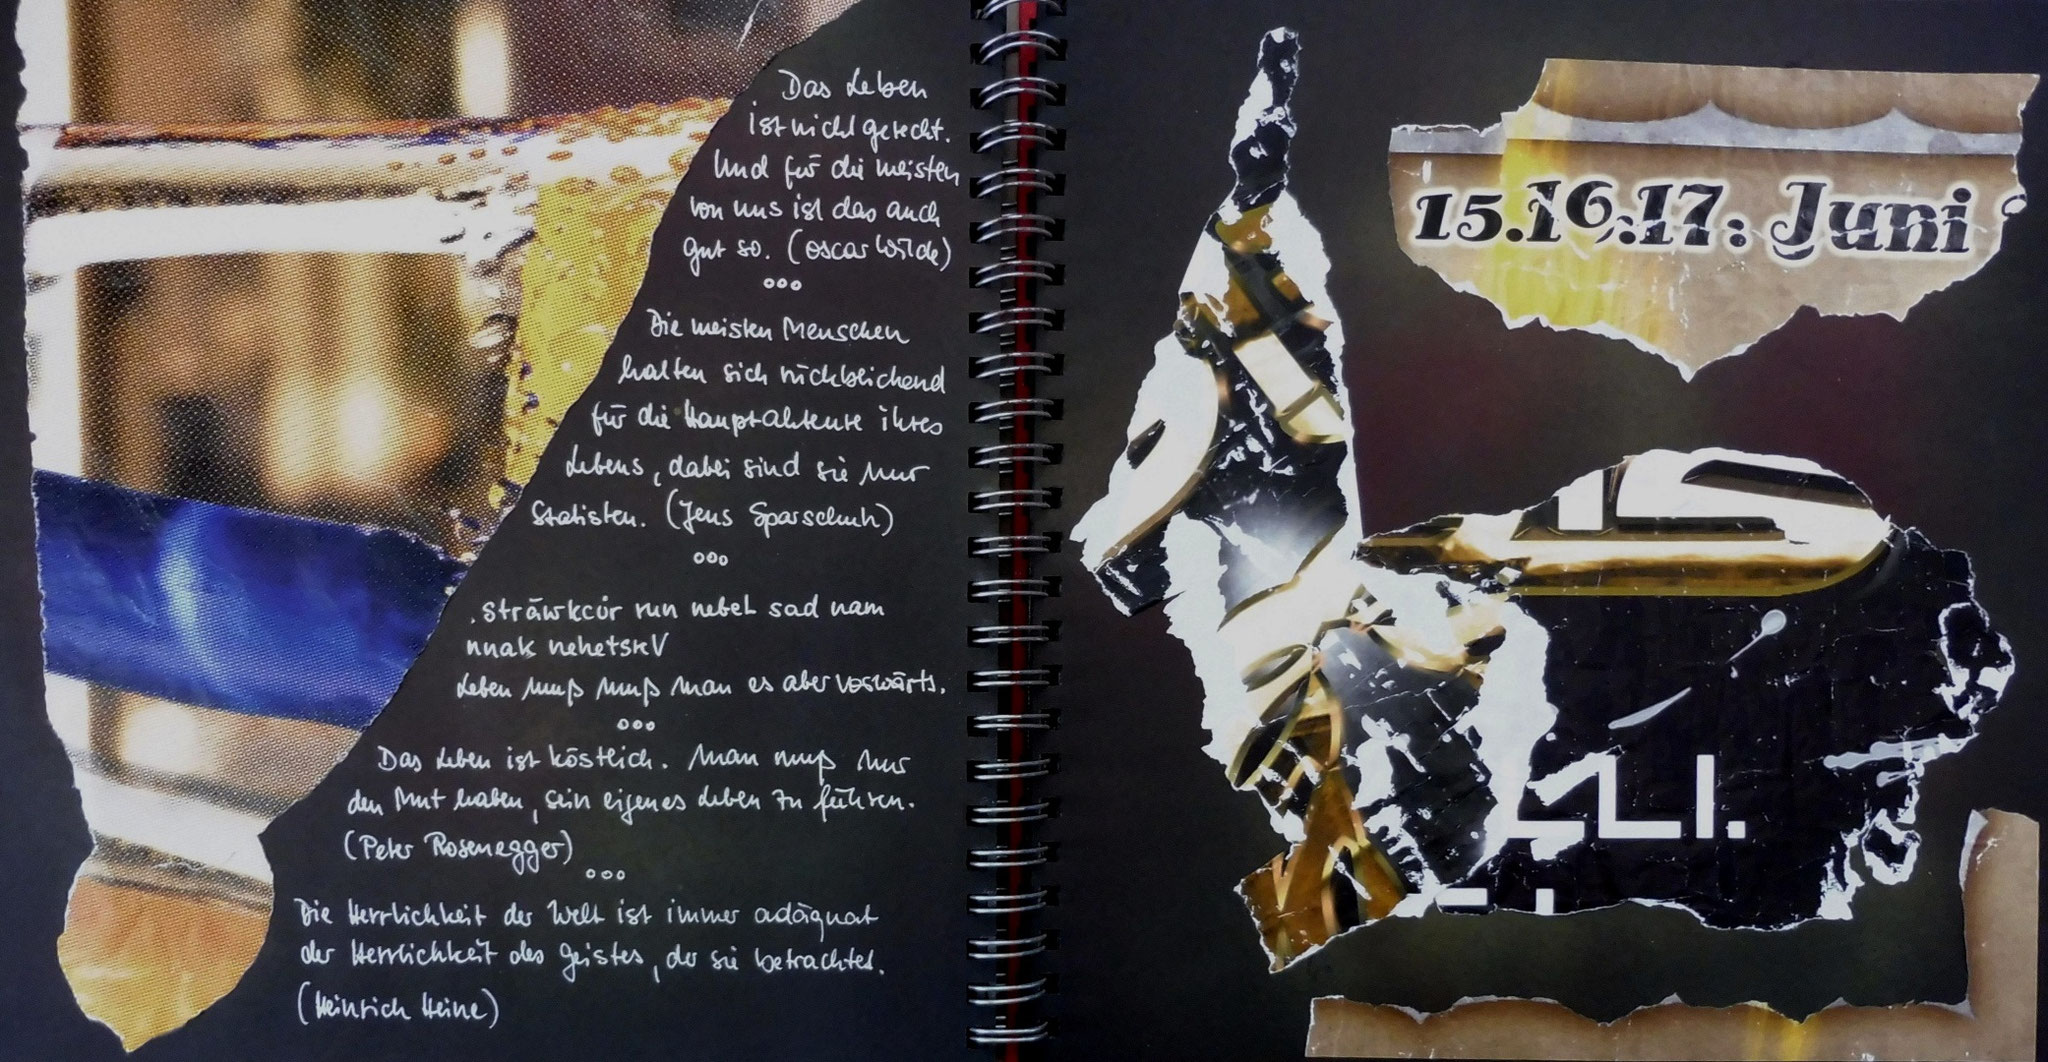 Das Leben
ist nicht gerecht.
Und für die meisten
von uns ist das auch
gut so. (Oscar Wilde)
ooo
Die meisten Menschen
halten sich rückblickend
für die Hauptakteure ihres
Lebens, dabei sind sie nur
Statisten. (Jens Sparschuh)
ooo
.sträwkcür run nebel sad nam
nnak nehetsreV
Leben muß muß man es aber vorwärts.
ooo
Das Leben ist köstlich. Man muß nur
den Mut haben, sein eigenes Leben zu führen.
(Peter Rosenegger)
ooo
Die Herrlichkeit der Welt ist immer adäquat
der Herrlichkeit des Geistes, der sie betrachtet.
(Heinrich Heine)
15.16.17. Juni